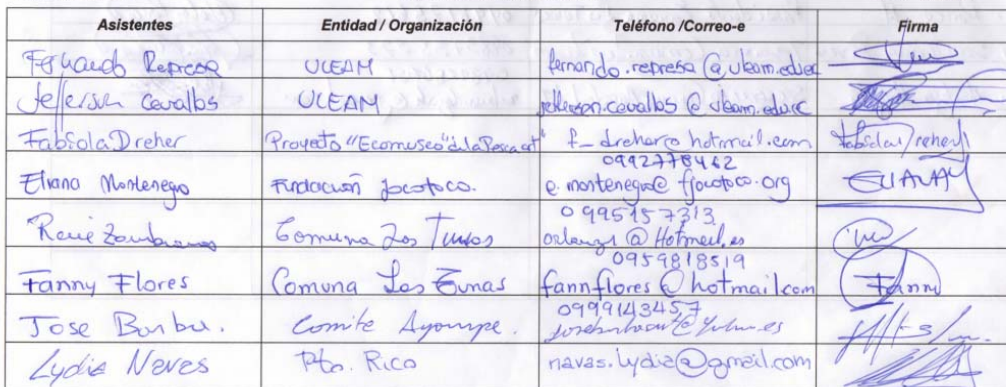 Asistentes Entidad / Organización Teléfono /Correo-e Firma
Fernando Represa ULEAM fernando.represa@uleam.edu.ec
Jefferson Cevallos ULEAM jefferson.cevallos@uleam.edu.ec
Fabiola Dreher Proyecto "Ecomuseo" de la Pesca art" f_dreher@hotmail.com Fabiola Dreher
0992778462
Eliana Montenegro Fundación Jocotoco. e.montenegro@fjocotoco.org ELIANAM
0995157313
Rene Zambrano Comuna Las Tunas @Hotmail.es
0959818519
Fanny Flores Comuna Las Tunas fannflores@hotmail.com Fanny
0999143457
Jose Barbu. Comite Ayampe.
Lydia Navas Pto. Rico navas.lydia@gmail.com